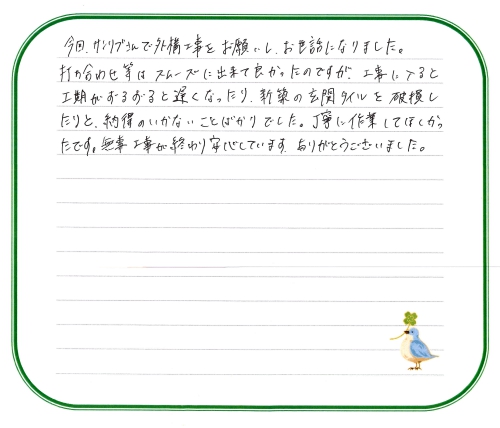 今回、サンリブさんで外構工事をお願いし、お世話になりました。
打ち合わせ等はスムーズに出来て良かったのですが、工事に入ると
工期がずるずると遅くなったり、新築の玄関タイルを破損し
たりと、納得のいかないことばかりでした。丁寧に作業してほしかっ
たです。無事工事が終わり安心しています。ありがとうございました。